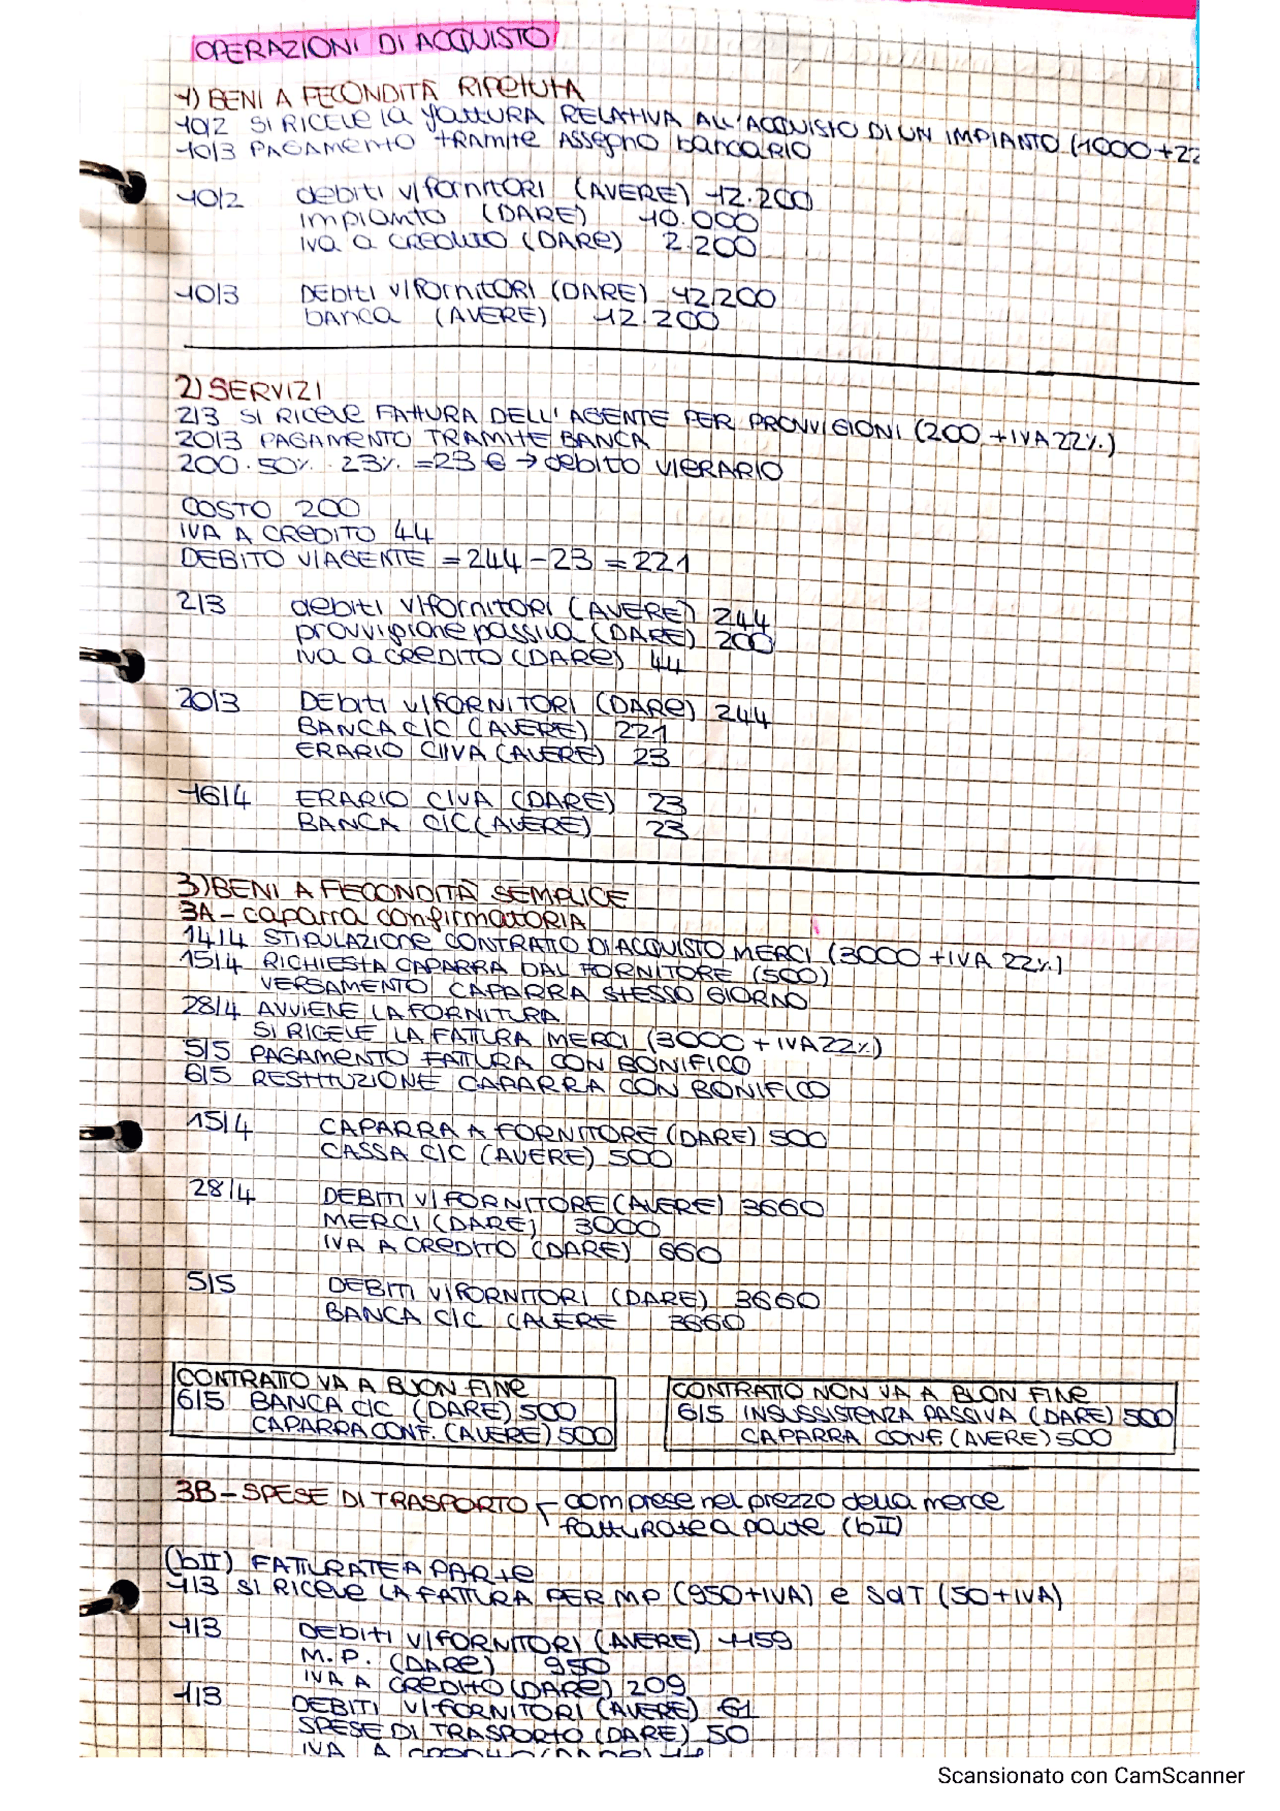 OPERAZIONI DI ACQUISTO
1) BENI A FECONDITÀ RIPETUTA
10/2 SI RICEVE la fattura RELATIVA ALL'ACQUISTO DI UN IMPIANTO (1000+22
10/3 PAGAMENTO tramite Assegno bancario
10/2 debiti v/fornitori (AVERE) 12.200
impianto (DARE) 10.000
iva a credito (DARE) 2.200
10/3 DEBITI V/FORNITORI (DARE) 12.200
banca (AVERE) 12.200
2) SERVIZI
2/3 SI RICEVE FATTURA DELL'AGENTE PER PROVVIGIONI (200 +IVA 22%)
20/3 PAGAMENTO TRAMITE BANCA
200 · 50% · 23% = 23 € → debito V/ERARIO
COSTO 200
IVA A CREDITO 44
DEBITO V/AGENTE = 244 - 23 = 221
2/3 debiti v/fornitori (AVERE) 244
provvigione passiva (DARE) 200
iva a CREDITO (DARE) 44
20/3 DEBITI V/FORNITORI (DARE) 244
BANCA C/C (AVERE) 221
ERARIO C/IVA (AVERE) 23
16/4 ERARIO C/IVA (DARE) 23
BANCA C/C (AVERE) 23
3) BENI A FECONDITÀ SEMPLICE
3A - caparra confirmatoria
14/4 STIPULAZIONE CONTRATTO DI ACQUISTO MERCI (3000 +IVA 22%)
15/4 RICHIESTA CAPARRA DAL FORNITORE (500)
VERSAMENTO CAPARRA STESSO GIORNO
28/4 AVVIENE LA FORNITURA
SI RICEVE LA FATTURA MERCI (3000 + IVA 22%)
5/5 PAGAMENTO FATTURA CON BONIFICO
6/5 RESTITUZIONE CAPARRA CON BONIFICO
15/4 CAPARRA A FORNITORE (DARE) 500
CASSA C/C (AVERE) 500
28/4 DEBITI V/FORNITORE (AVERE) 3660
MERCI (DARE) 3000
IVA A CREDITO (DARE) 660
5/5 DEBITI V/FORNITORI (DARE) 3660
BANCA C/C (AVERE 3660
CONTRATTO VA A BUON FINE
6/5 BANCA C/C (DARE) 500
CAPARRA CONF. (AVERE) 500
CONTRATTO NON VA A BUON FINE
6/5 INSUSSISTENZA PASSIVA (DARE) 500
CAPARRA CONF. (AVERE) 500
3B - SPESE DI TRASPORTO - comprese nel prezzo della merce
fatturate a parte (bII)
(bII) FATTURATE A PARTE
1/3 SI RICEVE LA FATTURA PER MP (950+IVA) e SdT (50+IVA)
1/3 DEBITI V/FORNITORI (AVERE) 1159
M.P. (DARE) 950
IVA A CREDITO (DARE) 209
1/3 DEBITI V/FORNITORI (AVERE) 61
SPESE DI TRASPORTO (DARE) 50
IVA A
Scansionato con CamScanner